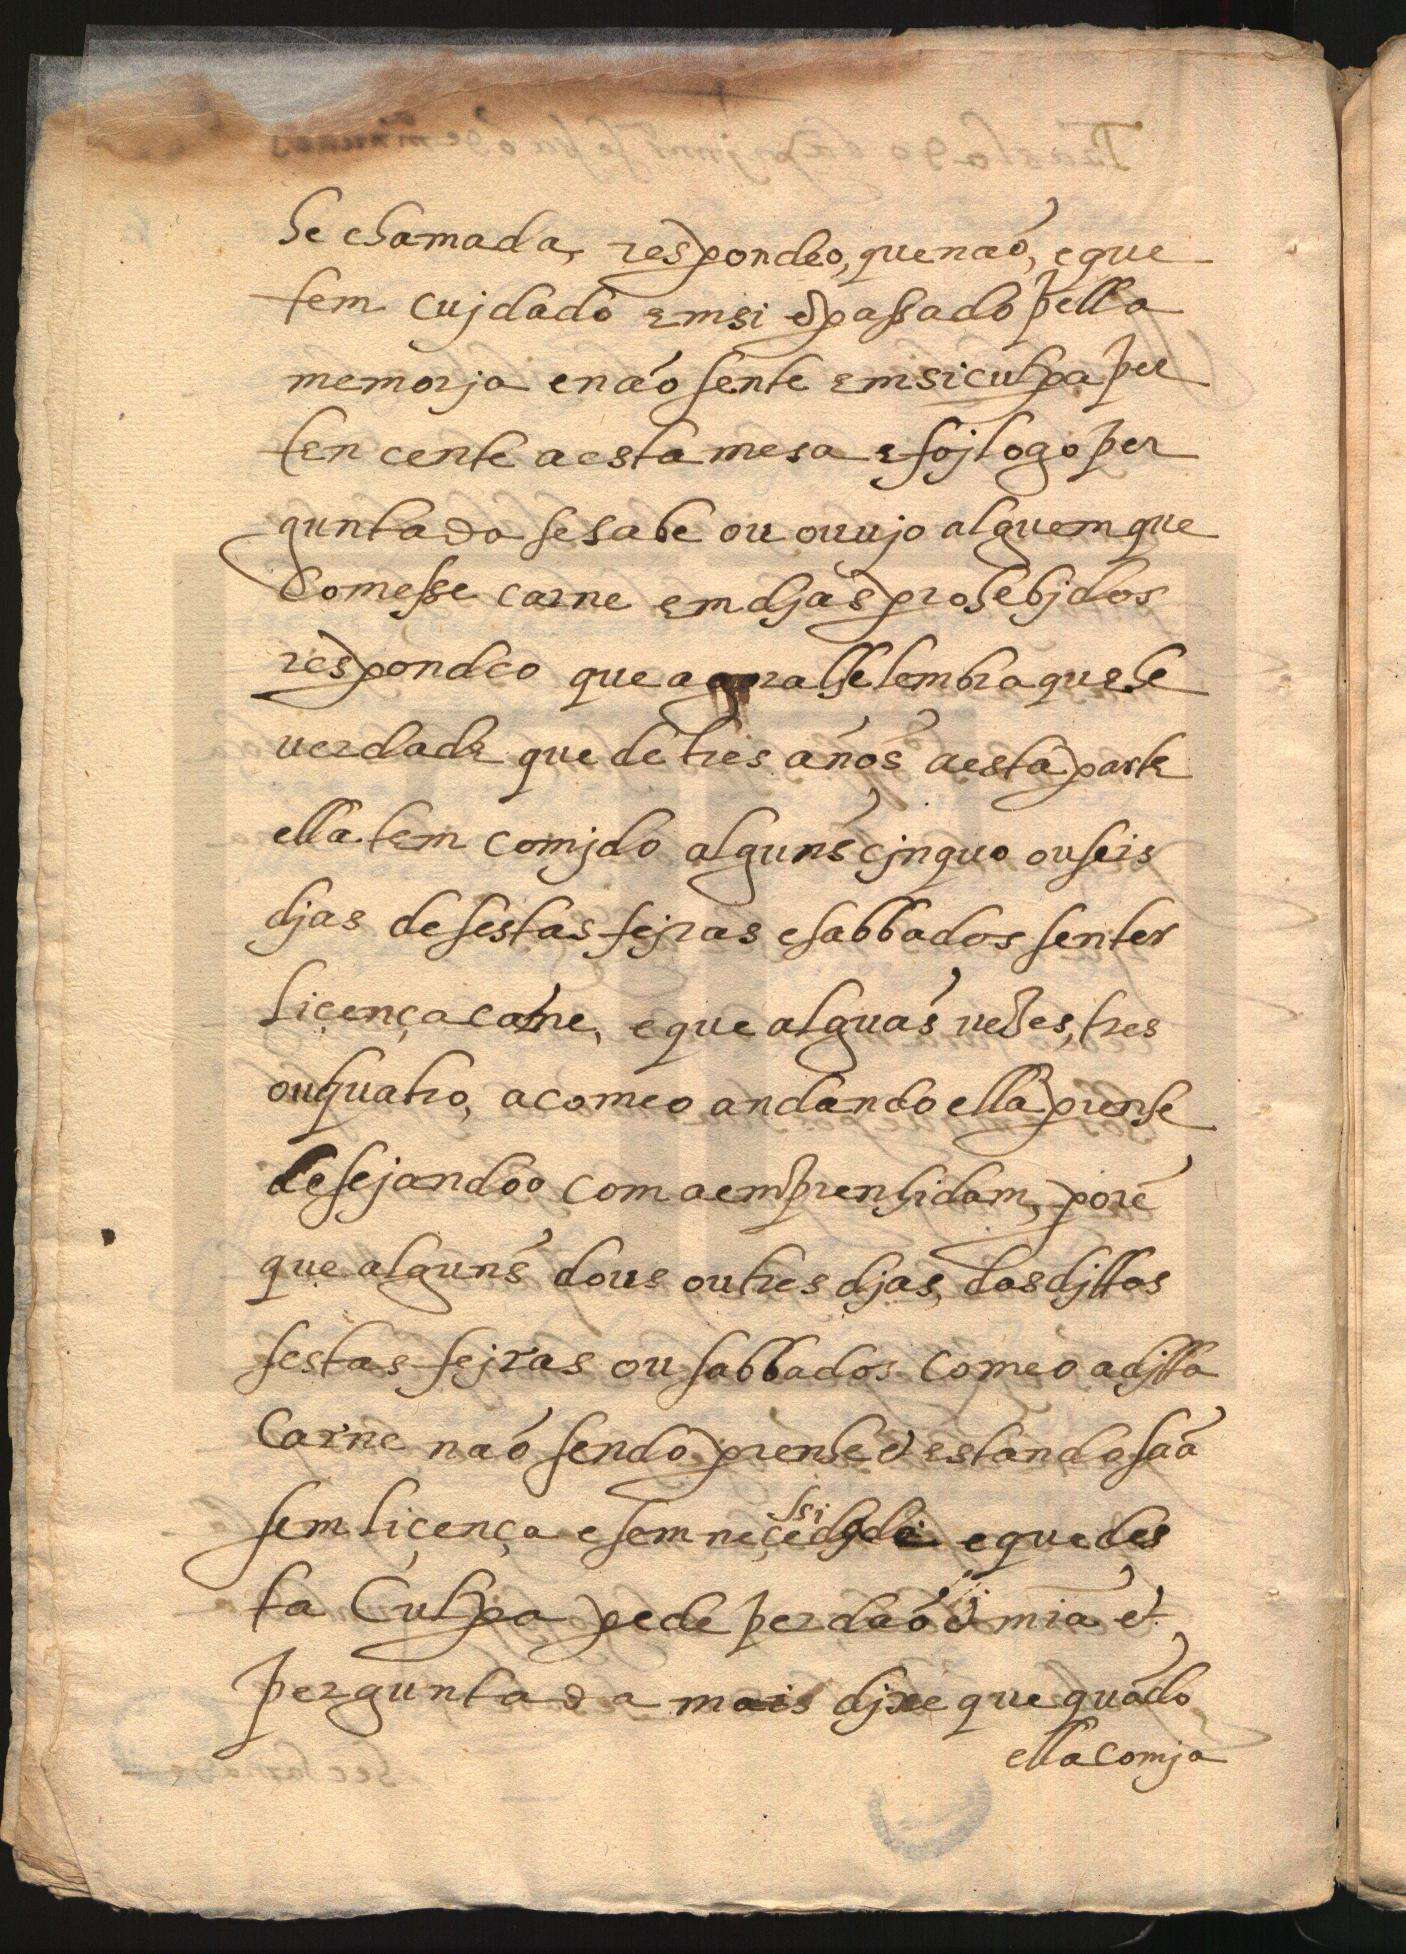 he chamada, respondeo, que naõ, e que
tem cujdado em si e passado pella
memorja e não sente em si culpa per
tencente a esta mesa e foj logo per
guntada se sabe ou ouujo alguem que
Comesse carne em djas prohebjdos
respondeo que agora sse lembra que he
uerdade que de tres ános a esta parte
ella tem comjdo alguns cjnquo ou seis
djas de sestas fejras e sabbados sen ter
licença carne, e que alguás uezes, tres
ou quatro, a comeo andando ella prenhe
desejandoo com a emprenhidam, porẽ
que alguns dous ou tres djas, das djttas
sestas fejras ou sabbados comeo a djtta
Carne naõ sendo prenhe e estando sáa
sem licença e sem neçessidade e que des
ta Culpa pede perdaõ e mia et
perguntada mais djxe que quãdo
ella comja